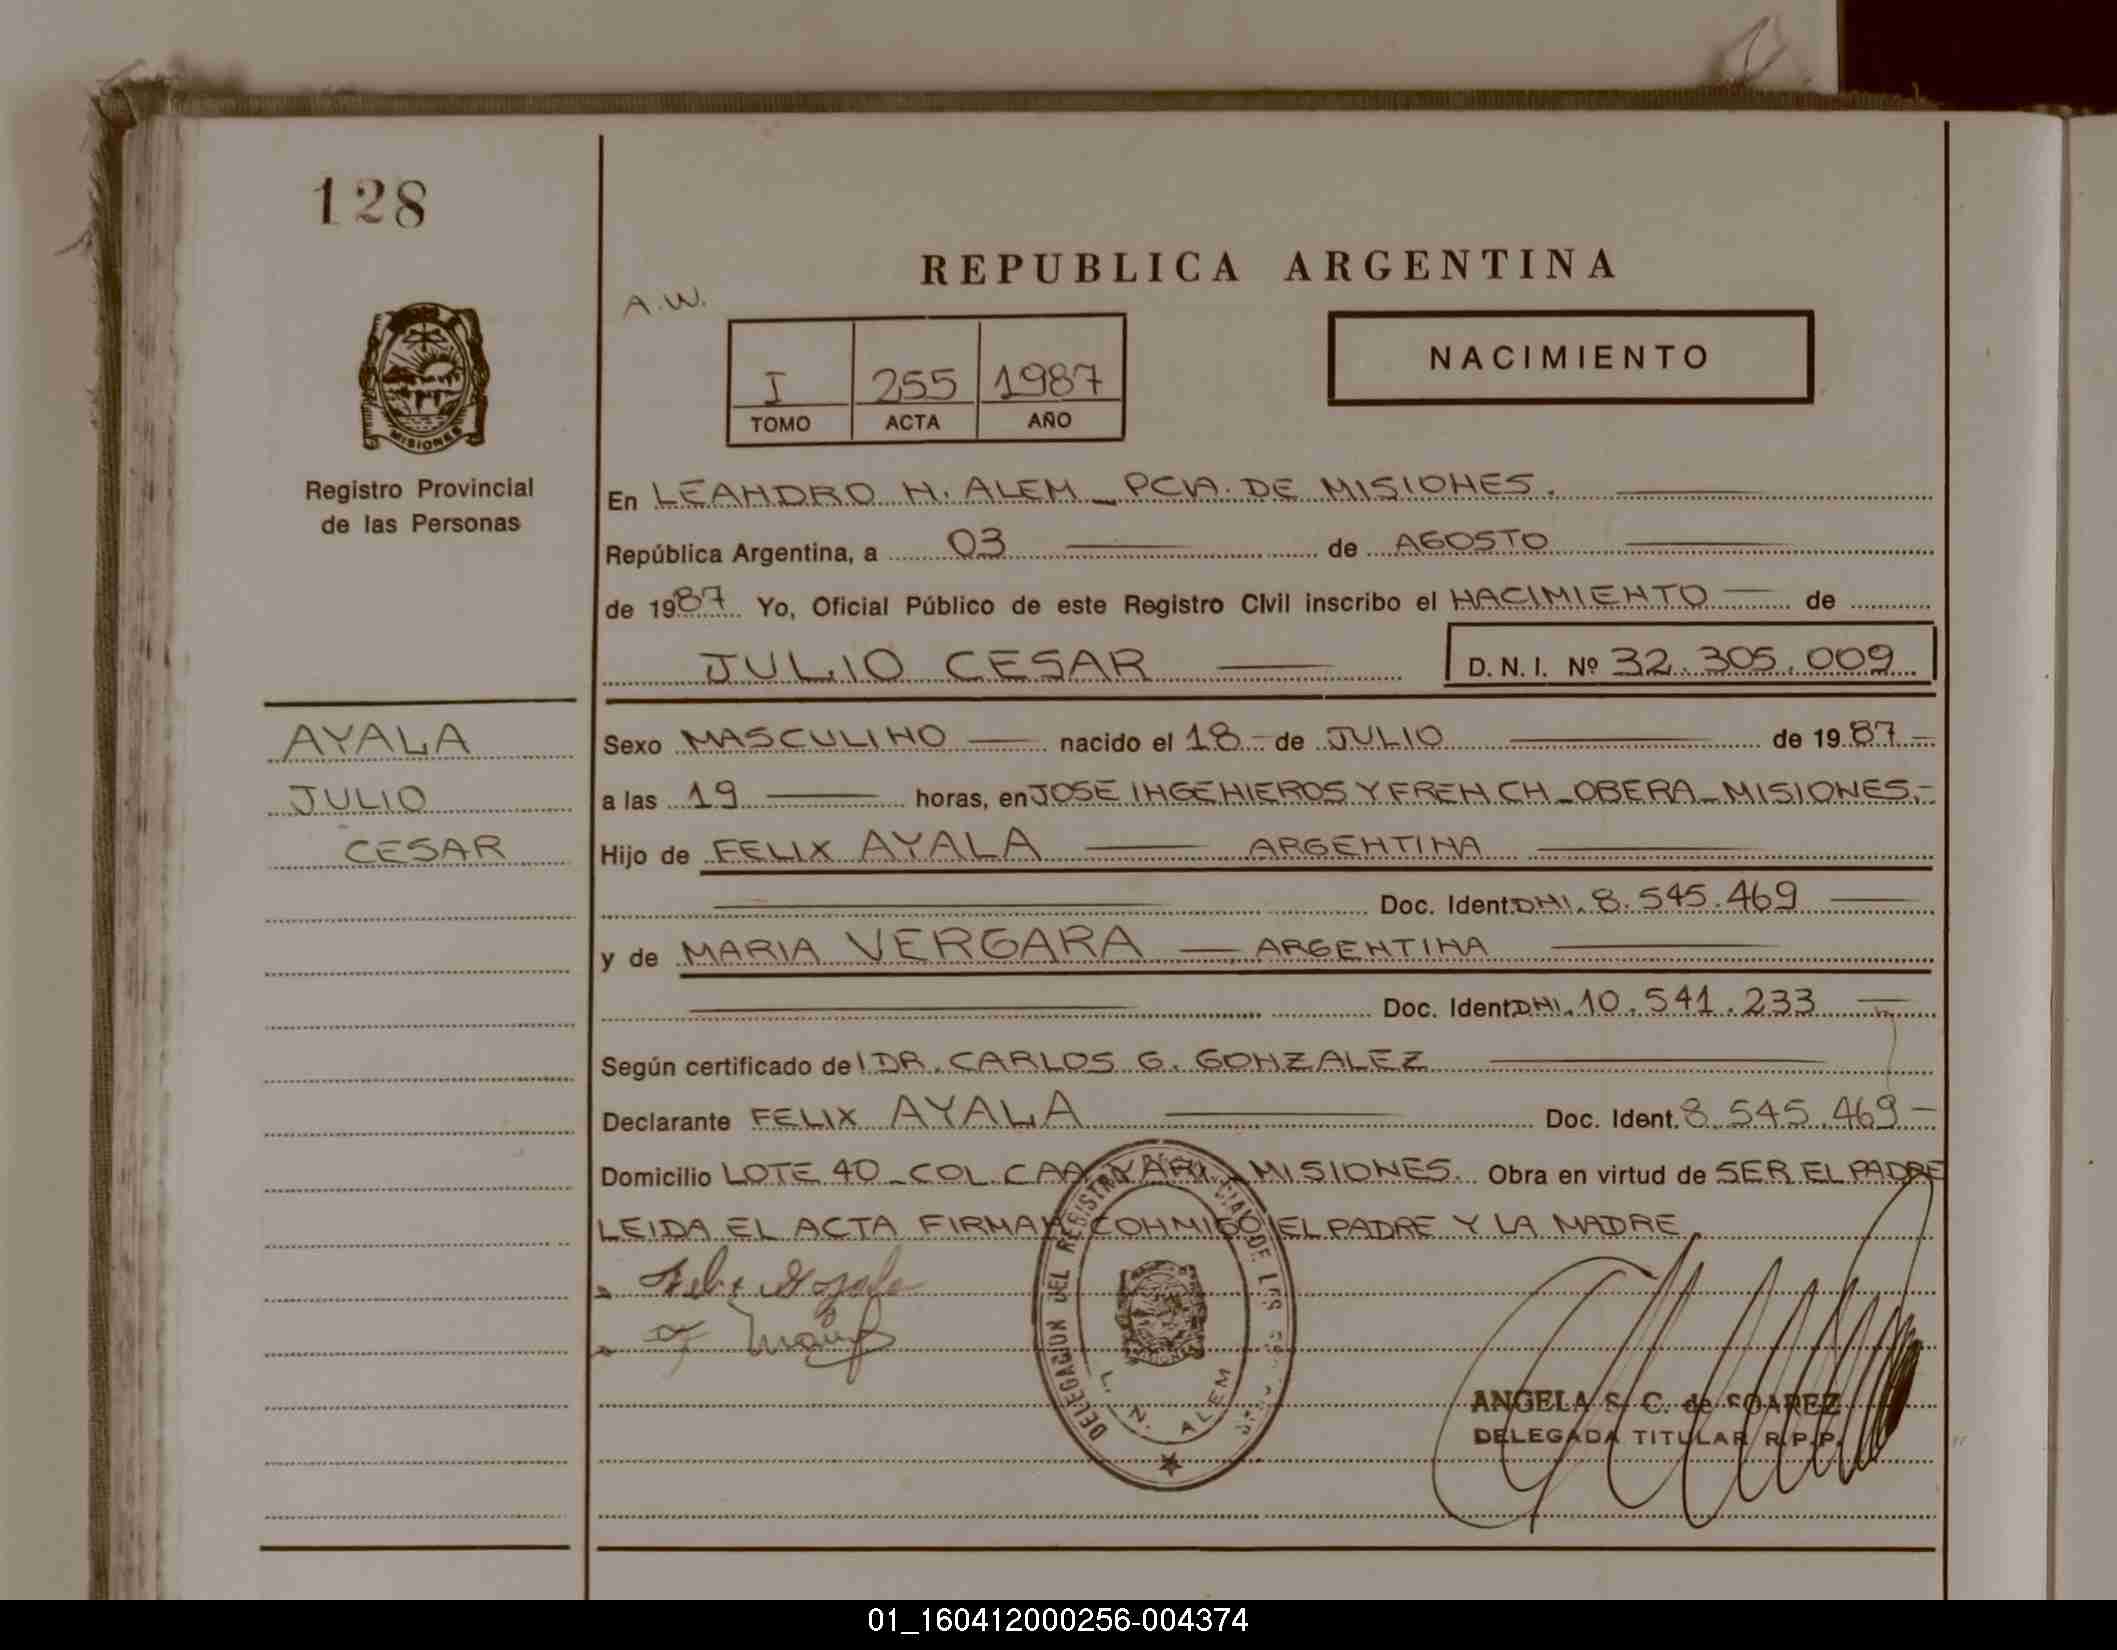 128
REPUBLICA ARGENTINA
A.W.
NACIMIENTO
I 255 1987
TOMO ACTA AÑO
MISIONES
Registro Provincial
de las Personas
En LEANDRO N. ALEM _ PCIA. DE MISIONES.
República Argentina, a 03 de AGOSTO
de 1987 Yo, Oficial Público de este Registro Civil inscribo el NACIMIENTO de
JULIO CESAR D. N. I. Nº 32.305.009
AYALA
JULIO
CESAR
Sexo MASCULINO nacido el 18 de JULIO de 1987
a las 19 horas, en JOSE INGENIEROS Y FRENCH _ OBERA _ MISIONES.
Hijo de FELIX AYALA ARGENTINA
Doc. Ident. DNI. 8.545.469
y de MARIA VERGARA ARGENTINA
Doc. Ident. DNI. 10.541.233
Según certificado del DR. CARLOS G. GONZALEZ
Declarante FELIX AYALA Doc. Ident. 8.545.469
Domicilio LOTE 40 _ COL. CAA YARI _ MISIONES. Obra en virtud de SER EL PADRE
LEIDA EL ACTA FIRMAN CONMIGO EL PADRE Y LA MADRE
DELEGACION DEL REGISTRO DE LAS
MISIONES
L. N. ALEM
ANGELA S. C. de SOAREZ
DELEGADA TITULAR R.P.P.
01_160412000256-004374